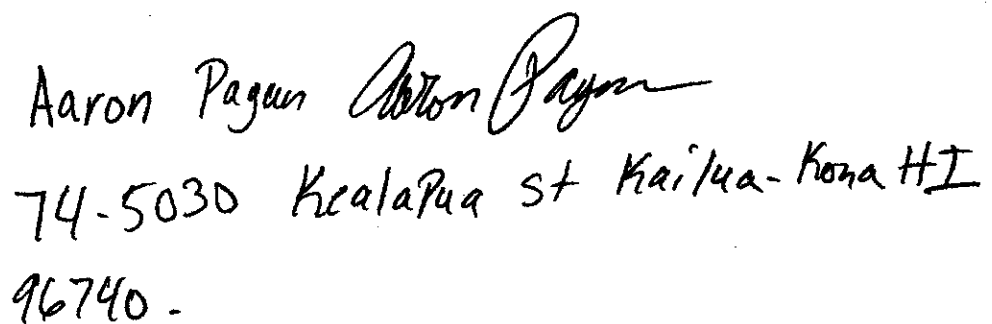 Aaron Pagan Aaron Pagan
74-5030 Kealapua st Kailua-Kona HI
96740.